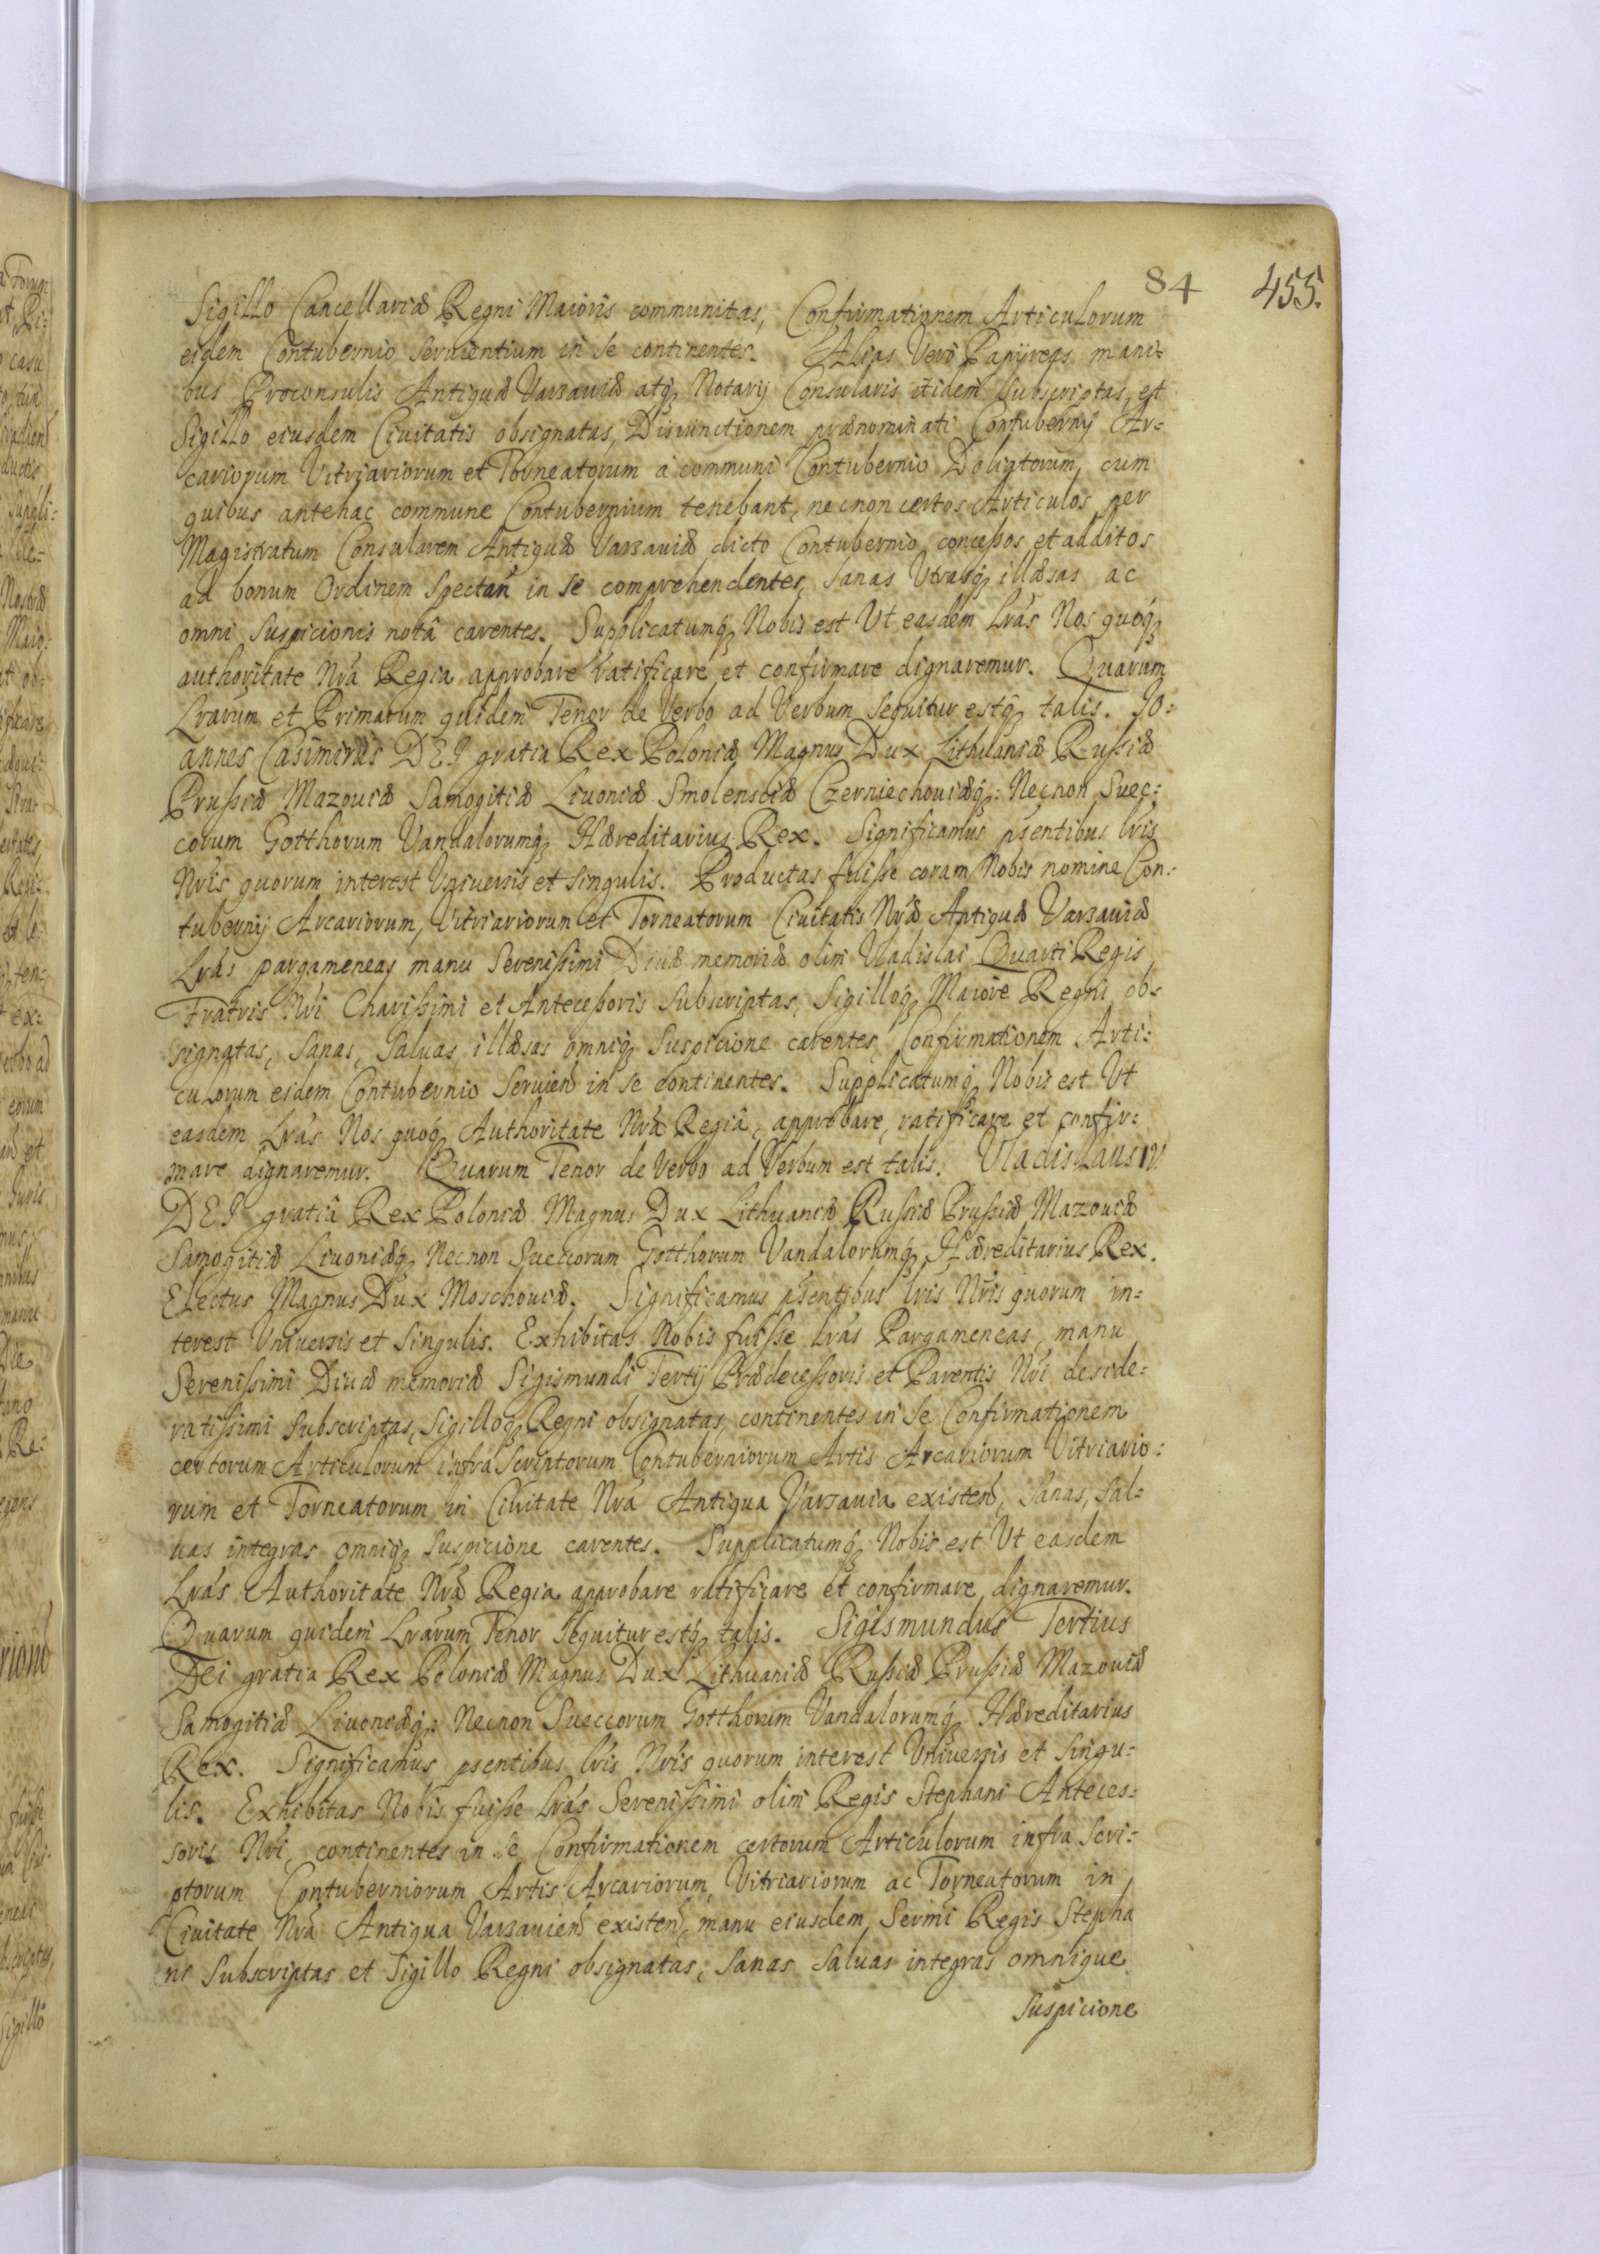 84 455.
Sigillo Cancellariæ Regni Maioris communitas, Confirmationem Articulorum
eidem Contubernio seruientium in se continentes. Alias Vero Papyreas mani-
bus Proconsulis Antiquæ Varsauiæ atq; Notarij Consularis itidem subscriptas, et
Sigillo eiusdem Ciuitatis obsignatas, Disiunctionem prænominati Contubernij Ar-
cariorum Vitriariorum et Torneatorum á communi Contubernio Doliatorum, cum
quibus antehac commune Contubernium tenebant, necnon certos Articulos per
Magistratum Consularem Antiquæ Varsauiæ dicto Contubernio concessos et additos
ad bonum Ordinem Spectan̄ in se comprehendentes, sanas Utrasq; illæsas ac
omni suspicionis notâ carentes. Supplicatumq; Nobis est Ut easdem Lrás Nos quoq;
authoritate Nrá Regia approbare ratificare et confirmare dignaremur. Quarum
Lrarum et Primarum quidem Tenor de Verbo ad Verbum sequitur estq; talis. Jo-
annes Casimirus DEI gratia Rex Poloniæ Magnus Dux Lithuaniæ Russiæ
Prussiæ Mazouiæ Samogitiæ Liuoniæ Smolensciæ Czerniechouiæq;: Necnon Suec-
corum Gotthorum Vandalorumq; Hæreditarius Rex. Significamus pśentibus lris
Nris quorum interest Vniuersis et singulis. Productas fuisse coram Nobis nomine Con-
tubernij Arcariorum, Vitriariorum et Torneatorum Ciuitatis Nræ Antiquæ Varsauiæ
Lrás pargameneas manu Serenissimi Diuæ memoriæ olim Vladislai Quarti Regis
Fratris Nri Charissimi et Antecessoris Subscriptas, Sigilloq; Maiore Regni ob-
signatas, sanas, saluas illæsas omniq; Suspicione carentes Confirmationem Arti-
culorum eidem Contubernio Seruien̄ in se continentes. Supplicatumq; Nobis est Ut
easdem Lrás Nos quoq; Authoritate Nrá Regiâ, approbare, ratificare et confir-
mare dignaremur. Quarum Tenor de Verbo ad Verbum est talis. Vladislaus IV.
DEI gratiâ Rex Poloniæ Magnus Dux Lithuaniæ Russiæ Prussiæ Mazouiæ
Samogitiæ Liuoniæq; Necnon Sueccorum Gotthorum Vandalorumq; Hæreditarius Rex.
Electus Magnus Dux Moschouiæ. Significamus pśentibus lris Nris quorum in-
terest Vniuersis et Singulis. Exhibitas Nobis fuisse Lrás Pargameneas, manu
Serenissimi Diuæ memoriæ Sigismundi Tertij Prædecessoris et Parentis Nri deside-
ratissimi subscriptas, Sigilloq; Regni obsignatas, continentes in se Confirmationem
certorum Articulorum infra Scriptorum Contuberniorum Artis Arcariorum Vitriario-
rum et Torneatorum in Ciuitate Nrá Antiqua Varsauia existen̄, sanas, sal-
uas integras omniq; Suspicione carentes. Supplicatumq; Nobis est Ut easdem
Lrás Authoritate Nrá Regia approbare ratificare et confirmare dignaremur.
Quarum quidem Lrarum Tenor Sequitur estq; talis. Sigismundus Tertius
Dei gratia Rex Poloniæ Magnus Dux Lithuaniæ Russiæ Prussiæ Mazouiæ
Samogitiæ Liuoniæq;: Necnon Sueccorum Gotthorum Vandalorumq; Hæreditarius
Rex. Significamus pśentibus lris Nris quorum interest Vniuersis et singu-
lis. Exhibitas Nobis fuisse Lrás Serenissimi olim Regis Stephani Anteces-
soris Nri, continentes in se Confirmationem certorum Articulorum infra scri-
ptorum Contuberniorum Artis Arcariorum Vitriariorum ac Torneatorum in
Ciuitate Nrá Antiqua Varsauien̄ existen̄, manu eiusdem Sermi Regis Stepha
ni Subscriptas et Sigillo Regni obsignatas, sanas saluas integras omnique
Suspicione